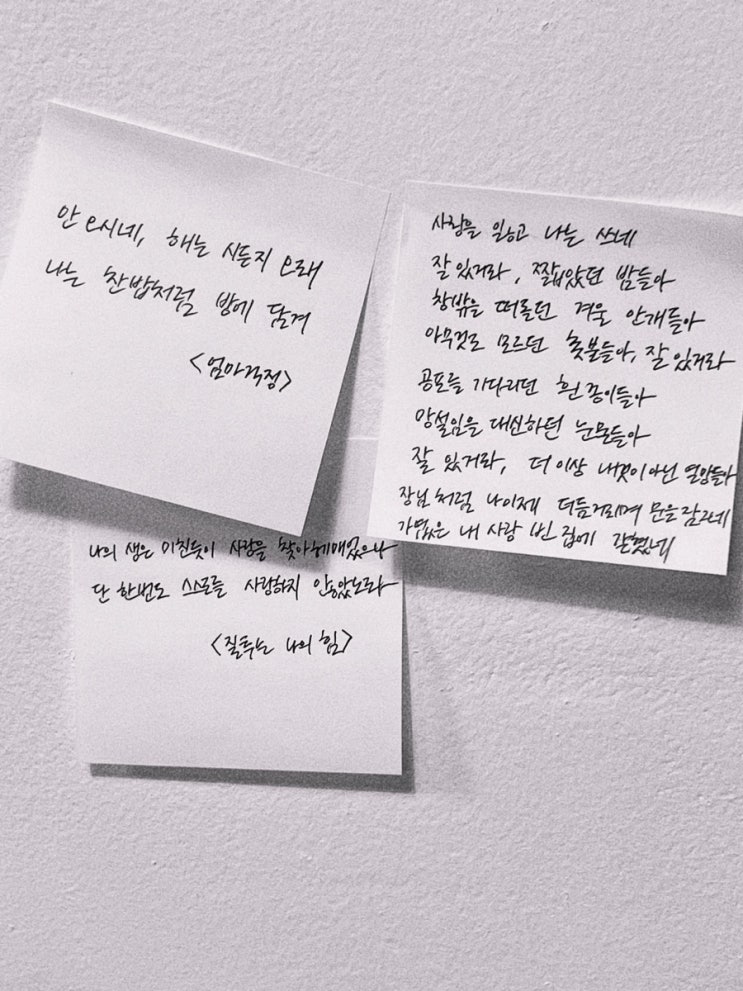 안 오시네, 해는 시든지 오래
나는 찬밥처럼 방에 담겨
<엄마걱정>
사랑을 잃고 나는 쓰네
잘 있거라, 짧았던 밤들아
창밖을 떠돌던 겨울 안개들아
아무것도 모르던 촛불들아, 잘 있거라
공포를 기다리던 흰 종이들아
망설임을 대신하던 눈물들아
잘 있거라, 더 이상 내것이 아닌 열망들아
장님처럼 나 이제 더듬거리며 문을 잠그네
가엾은 내 사랑 빈 집에 갇혔네
나의 생은 미친듯이 사랑을 찾아 헤매었으나
단 한번도 스스로를 사랑하지 않았노라
<질투는 나의 힘>